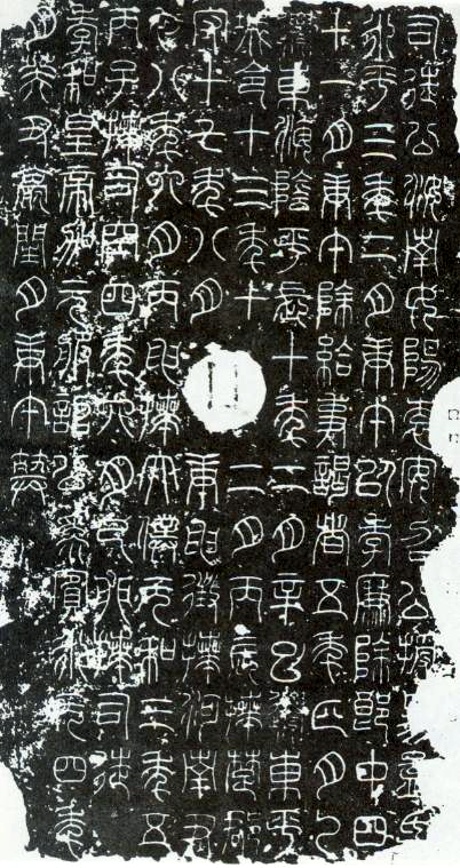 司徒公汝南女陽袁安召公授孟氏
永平三年二月庚午以孝廉除郎中四
十一月庚午除給事謁者五年正月乙
遷東海陰平長十年二月辛巳遷東平
城令十三年十二月丙辰拜楚郡
守十七年八月庚申徵拜河南尹
初八年六月丙申拜太僕元和三年五
丙子拜司空四年六月己卯拜司徒
孝和皇帝加元服詔公為賓永元四年
月癸丑薨閏月庚午葬